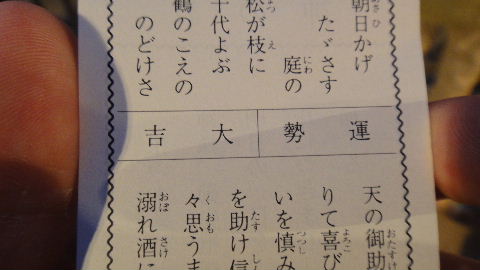 朝日かげ
たゞさす
庭の
松が枝に
千代よぶ
鶴のこえの
のどけさ
運勢 大吉
天の御助
りて喜び
いを慎み
を助け信
々思うま
溺れ酒に